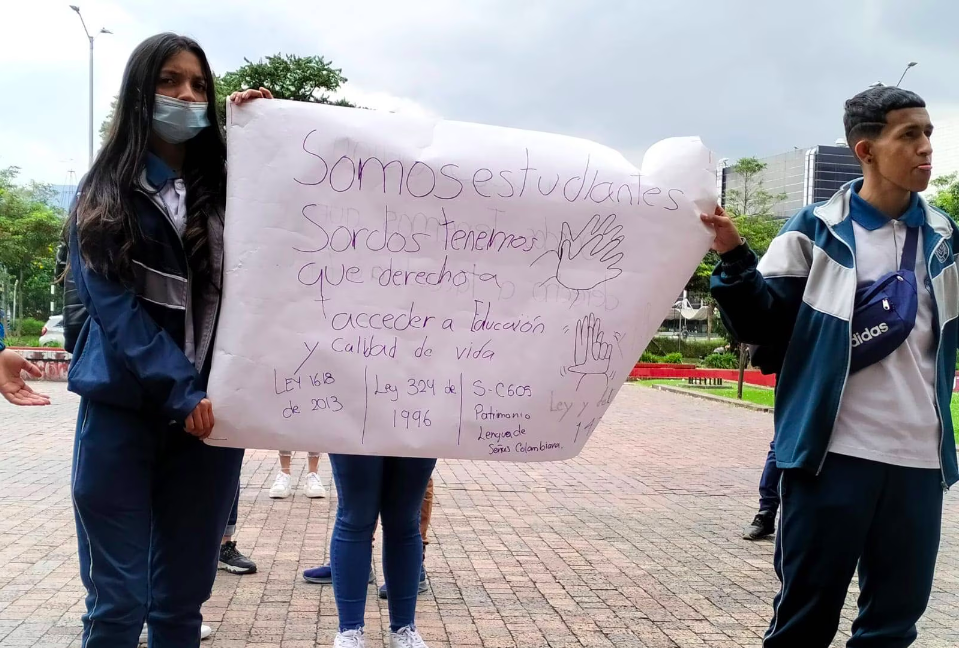 Somos estudiantes
Sordos tenemos
que derecho ta
acceder a Educaión
y calidad de vida
LEY 1618
de 2013
Ley 324 de
1996
S-C605
Patrimonio
Lengua de
Señas Colombiana.
Ley y
adidas